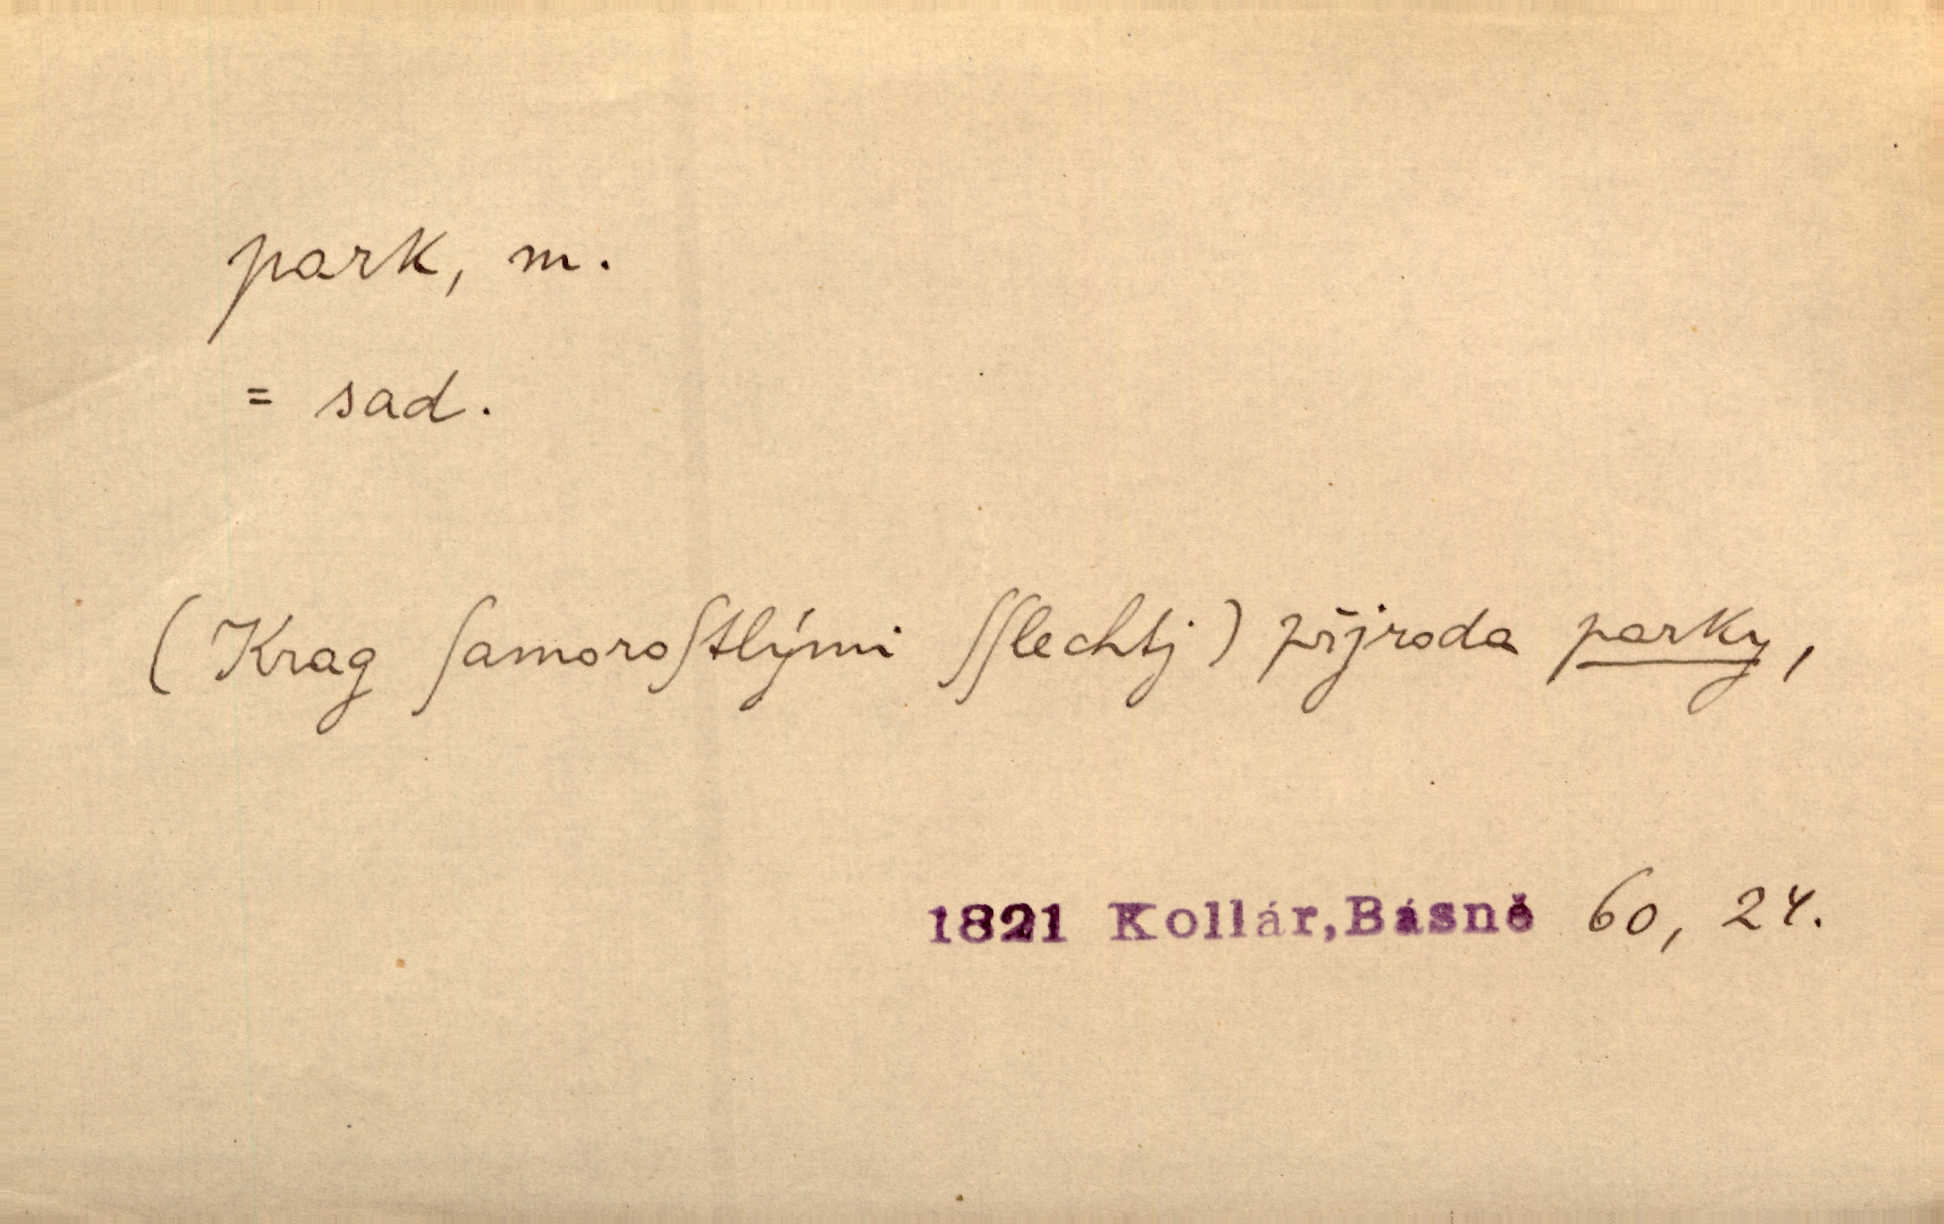 park, m.
= sad.
(Krag ſamoroſtlými ſſlechtj) přjroda parky,
1821 Kollár,Básně 60, 24.